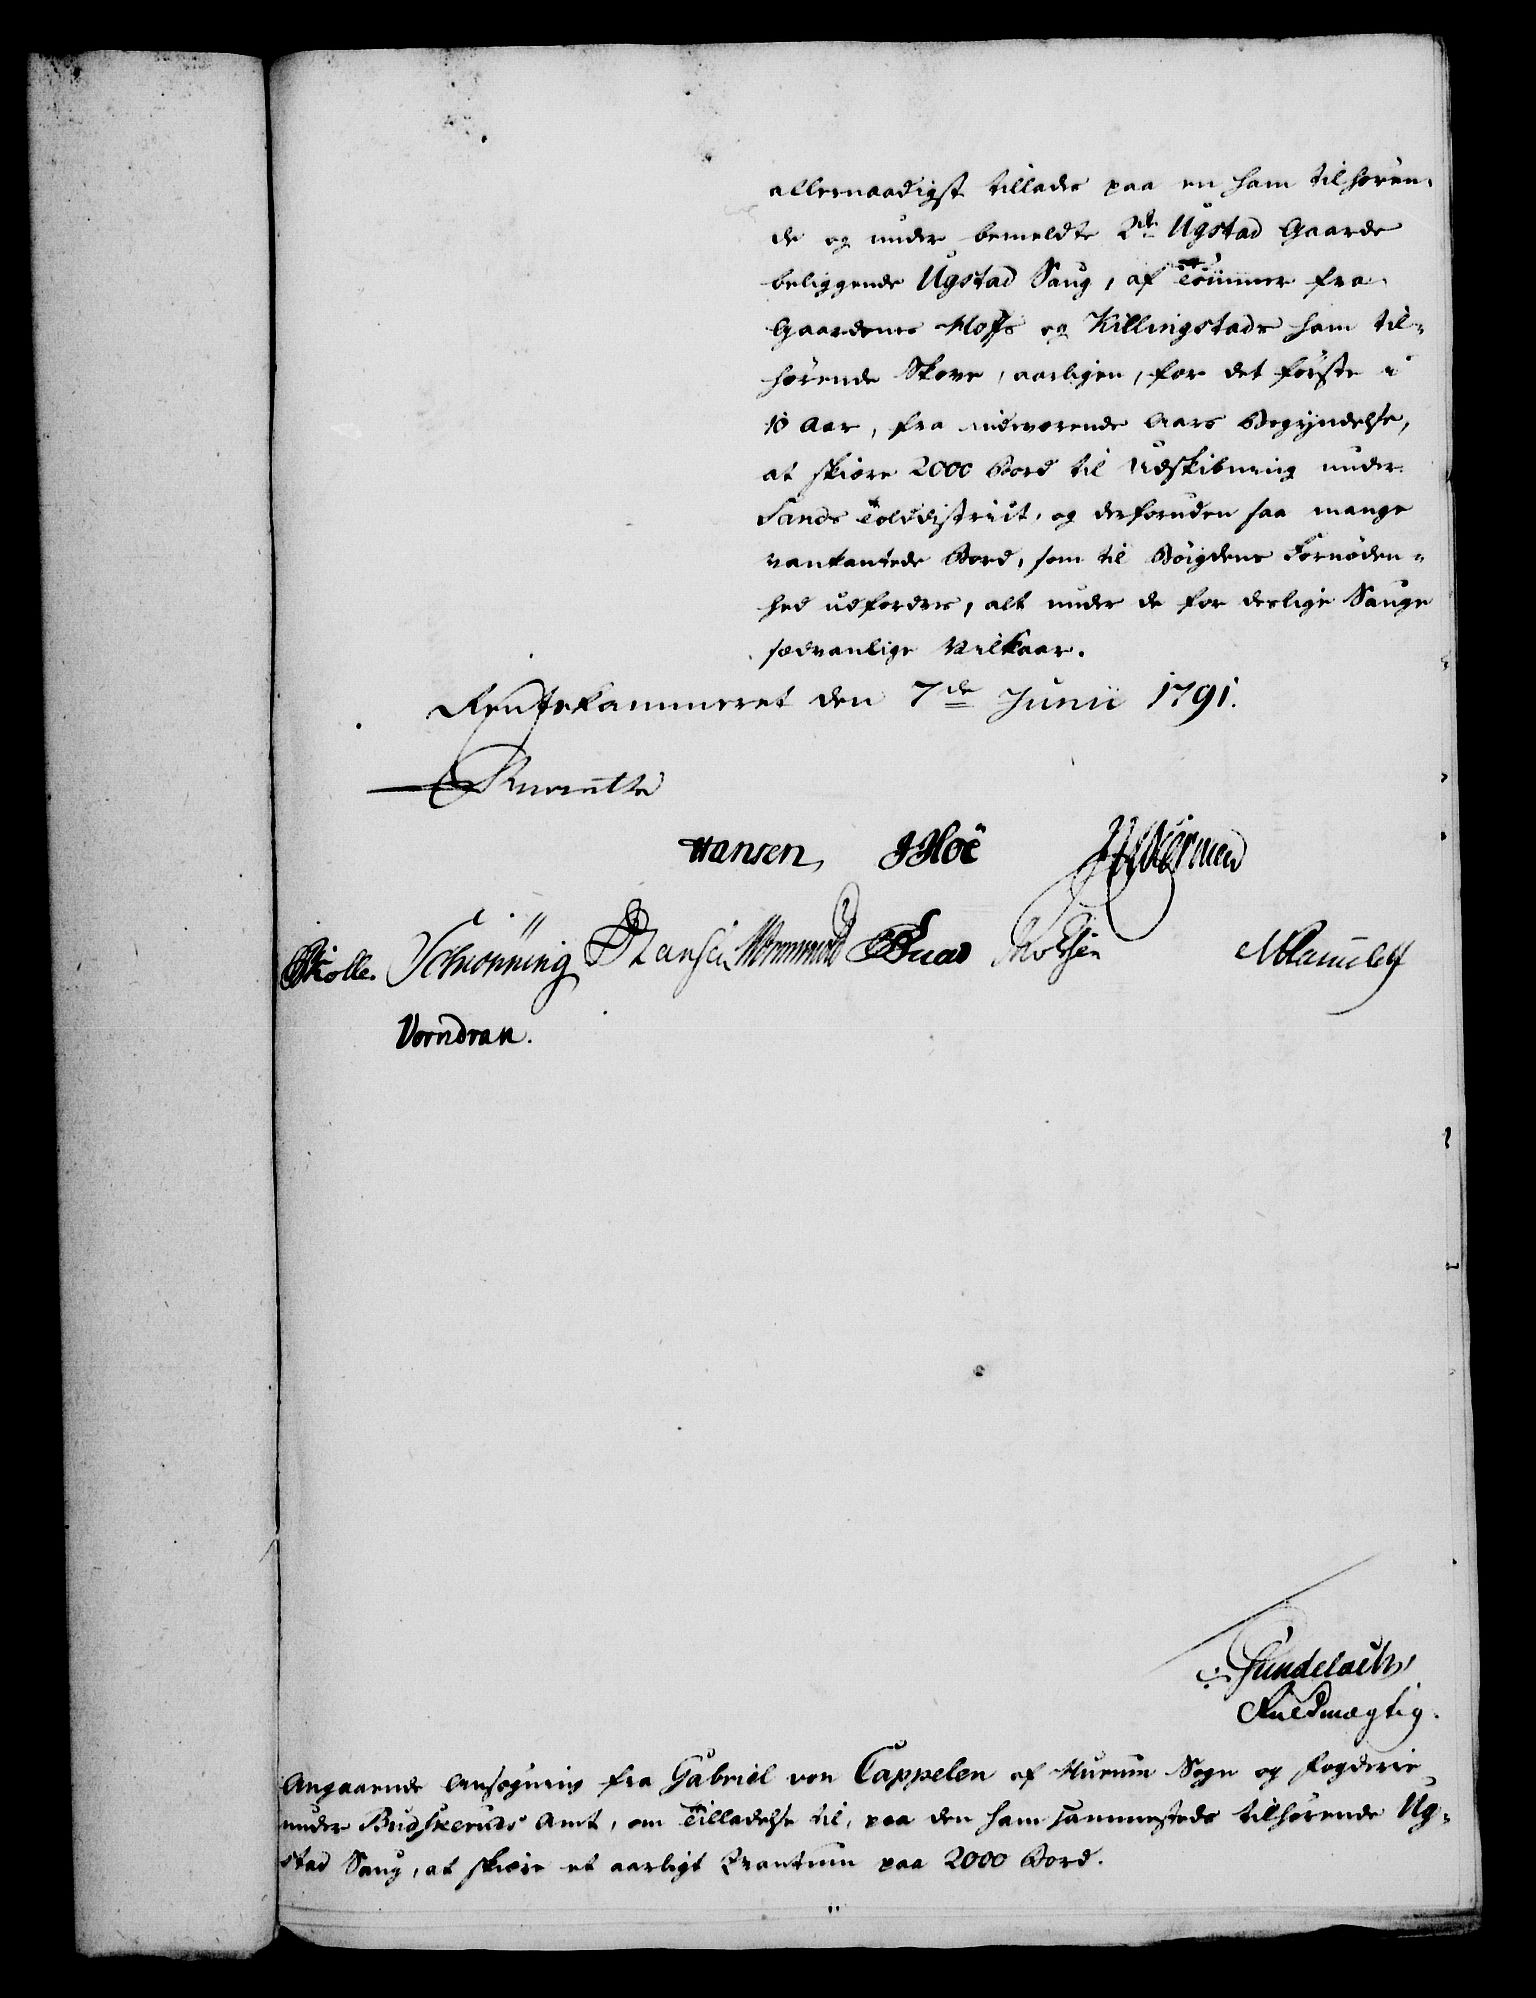 allernaadigst tillades paa en ham tilhøren-
de og under bemeldte 2de Ugstad Gaarde
beliggende Ugstad Saug, af Tømmer fra
Gaardenes Moss og Killingstads ham til-
hørende Skove, aarligen, for det første i
10 Aar, fra indeværende Aars Begyndelse,
at skiære 2000 Bord til Udskibning under
Sands Tolddistrict, og desforuden saa mange
vankantede Bord, som til Bøigdens Fornøden-
hed udfordres, alt under de for deslige Sauge
sædvanlige Vilkaar.
Rentekammeret den 7de Junii 1791.
Hansen, JHoë
Schiønning Hansen
Vorndran.
Gundelach,
Fuldmægtig.
Angaaende Ansøgning fra Gabriel von Cappelen af Hurum Sogn og Fogderie
under Budskeruds Amt, om Tilladelse til, paa den ham sammesteds tilhørende Ug-
stad Saug, at skiære et aarligt Qvantum paa 2000 Bord.